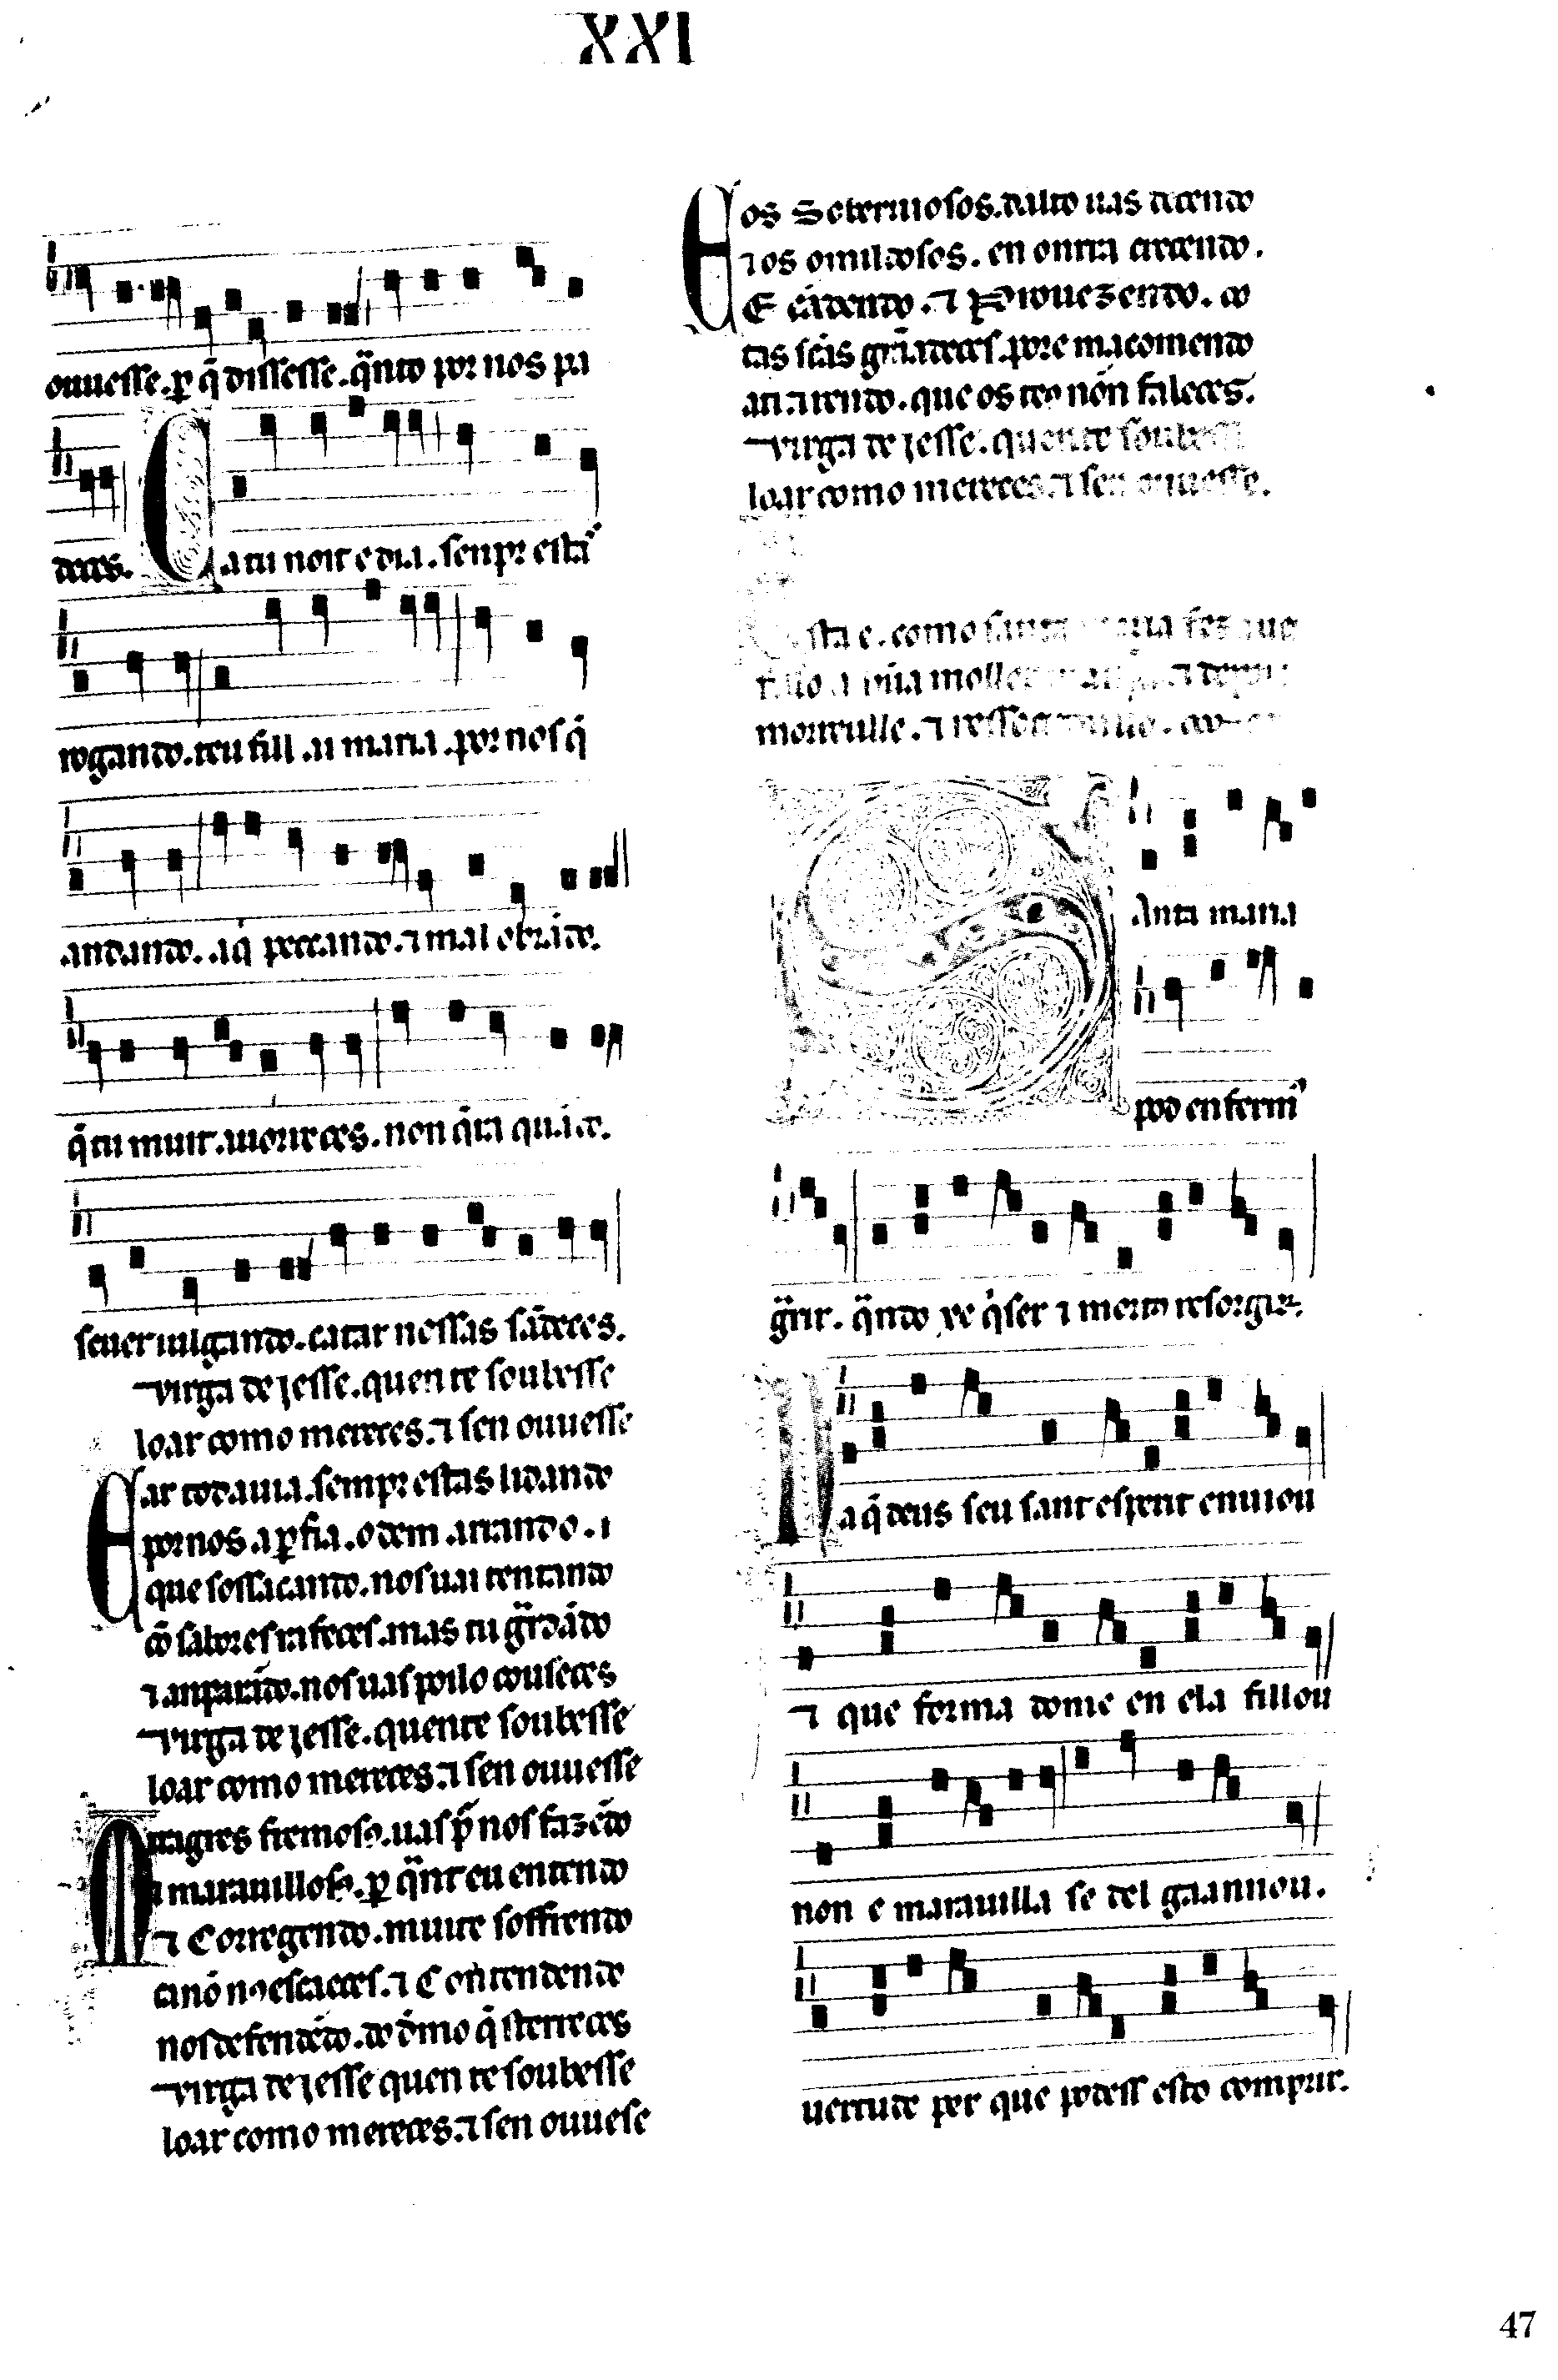 XXI
ouuesse. ꝑ q̃ dissesse. q̈nto por nos pa
deces. Ca tu noit e dia. senpr estã
rogando. teu fill ai maria. por nos q̃
andando. aq̃ peccando. ⁊ mal obrãdo.
q̃ tu muit auorreces. non q̃ra quãdo.
seuer iulgando. catar nossas sãdeces.
Virga de iesse. quen te soubesse
loar como mereces. ⁊ sen ouuesse
E ar todauia. sempr estas lidando
por nos. a ꝑfia. o dem arrando. i
que sossacando. nos uai tentando
cõ sabores rafeces. mas tu g̈rdãdo
⁊ anparãdo. nos uas poilo couseces
Virga de iesse. quen te soubesse
loar como mereces. ⁊ sen ouuesse
Miragres fremosos. uas p̃ nos fazẽdo
⁊ marauillosos. ꝑ q̈nt eu entendo
⁊ Corregendo. muite soffrendo
ca nõ nos escaeces. ⁊ Contendendo
nos defendẽdo. do dẽmo q̃ sterreces
Virga de iesse quen te soubesse
loar como mereces. ⁊ sen ouuese
Eos Soberuiosos. dalto uas decendo
⁊ os omildosos. en onrra crecendo.
E ẽadendo. ⁊ Prouezendo. to
tas sc̃as grãadeces. pore m acomendo
a ti ⁊ rendo. que os teus non faleces.
Virga de iesse. quen te soubess
loar como mereces. ⁊ sen ouuesse.
sta e. como santa maria fez auer
fillo a hũa moller ⁊ depois
morreulle. ⁊ ressocitoullo.
Santa maria
pod enfermˀ
g̈rir. q̈ndo xe q̃ser ⁊ morto resorgir.
Na q̃ deus seu sant esperit enuiou
⁊ que forma dome en ela fillou
non e marauilla se del gaannou.
uertude per que podess esto comprir.
47